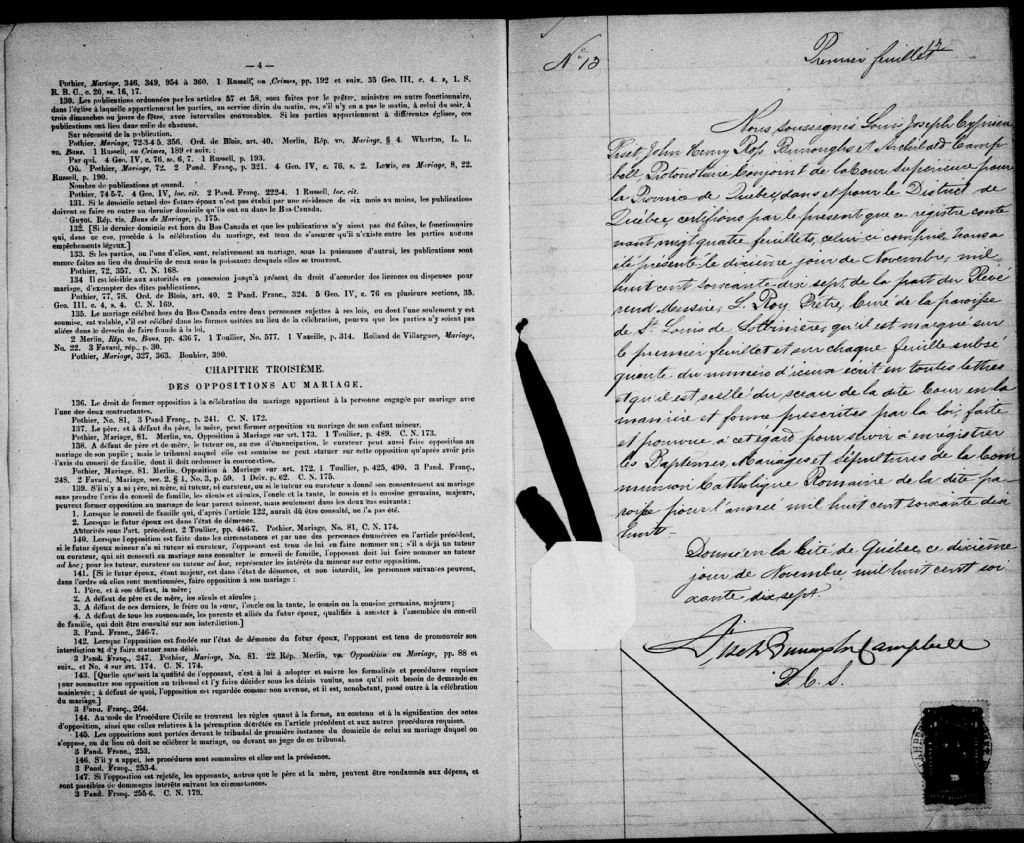 — 4 —
Pothier, Mariage, 346, 349, 954 à 360. 1 Russell, on Crimes, pp. 192 et suiv. 35 Geo. III, c. 4, s, 1. S.
R. B. C., c. 20, ss. 16, 17.
130. Les publications ordonnées par les articles 57 et 58, sont faites par le prêtre, ministre ou autre fonctionnaire,
dans l'église à laquelle appartiennent les parties, au service divin du matin, ou, s'il n'y en a pas le matin, à celui du soir, à
trois dimanches ou jours de fêtes, avec intervalles convenables. Si les parties appartiennent à différentes églises, ces
publications ont lieu dans celle de chacune.
Sur nécessité de la publication.
Pothier, Mariage, 72-3-4-5, 356. Ord. de Blois, art. 40. Merlin, Rép. vo. Mariage, § 4. Wharton, L. L.
vo. Bans. 1 Russell, on Crimes, 189 et suiv. :
Par qui. 4 Geo. IV, c. 76, ss. 6, 7. 1 Russell, p. 193.
Où. Pothier, Mariage, 72. 2 Pand. Franç., p. 321. 4 Geo. IV, c. 76, s. 2. Lewis, on Mariage, 8, 22.
Russell, p. 190.
Nombre de publications et quand.
Pothier, 74-5-7. 4 Geo. IV, loc. cit. 2 Pand. Franç. 222-4. 1 Russell, loc. cit.
131. Si le domicile actuel des futurs époux n'est pas établi par une résidence de six mois au moins, les publications
doivent se faire en outre au dernier domicile qu'ils ont eu dans le Bas-Canada.
Guyot, Rép. vis. Bans de Mariage, p. 175.
132. [Si le dernier domicile est hors du Bas-Canada et que les publications n'y aient pas été faites, le fonctionnaire
qui, dans ce cas, procède à la célébration du mariage, est tenu de s'assurer qu'il n'existe entre les parties aucuns
empêchements légaux.]
133. Si les parties, ou l'une d'elles, sont, relativement au mariage, sous la puissance d'autrui, les publications sont
encore faites au lieu du domicile de ceux sous la puissance desquels elles se trouvent.
Pothier, 72, 357. C. N. 168.
134 Il est loisible aux autorités en possession jusqu'à présent du droit d'accorder des licences ou dispenses pour
mariage, d'exempter des dites publications.
Pothier, 77, 78. Ord. de Blois, art. 40. 2 Pand. Franç., 324. 5 Geo. IV, c. 76 en plusieurs sections, 35.
Geo. III, c. 4, s. 4. C. N. 169.
135. Le mariage célébré hors du Bas-Canada entre deux personnes sujettes à ses lois, ou dont l'une seulement y est
soumise, est valable, s'il est célébré dans les formes usitées au lieu de la célébration, pourvu que les parties n'y soient pas
allées dans le dessein de faire fraude à la loi.
2 Merlin, Rép. vo. Bans, pp. 436 7. 1 Toullier, No. 577. 1 Vazeille, p. 314. Rolland de Villargues, Mariage,
No. 22. 3 Favard, rép., p. 30.
Pothier, Mariage, 327, 363. Bouhier, 390.
CHAPITRE TROISIÈME.
DES OPPOSITIONS AU MARIAGE.
136. Le droit de former opposition à la célébration du mariage appartient à la personne engagée par mariage avec
l'une des deux contractantes.
Pothier, No. 81, 3 Pand Franç., p. 241. C. N. 172.
137. Le père, et à défaut du père, la mère, peut former opposition au mariage de son enfant mineur.
Pothier, Mariage, 81. Merlin, vo. Opposition à Mariage sur art. 173. 1 Toullier, p. 489. C. N. 173.
138. A défaut de père et de mère, le tuteur ou, au cas d'émancipation, le curateur peut aussi faire opposition au
mariage de son pupile ; mais le tribunal auquel elle est soumise ne peut statuer sur cette opposition qu'après avoir pris
l'avis du conseil de famille, dont il doit ordonner la convocation.
Pothier, Mariage, 81. Merlin, Opposition à Mariage sur art. 172. 1 Toullier, p. 425, 490. 3 Pand. Franç.,
248. 2 Favard, Mariage, sec. 2. § 1, No. 3, p. 59. 1 Delv. p. 62. C. N. 175.
139. S'il n'y a ni père, ni mère, ni tuteur, ni curateur, ou si le tuteur ou curateur a donné son consentement au mariage
sans prendre l'avis du conseil de famille, les aïeuls et aïeules, l'oncle et la tante, le cousin et la cousine germains, majeurs,
peuvent former opposition au mariage de leur parent mineur, mais seulement dans les deux cas suivants :
1. Lorsque le conseil de famille qui, d'après l'article 122, aurait dû être consulté, ne l'a pas été.
2. Lorsque le futur époux est dans l'état de démence.
Autorités sous l'art. précédent. 2 Toullier, pp. 446-7. Pothier, Mariage, No. 81, C. N. 174.
140. Lorsque l'opposition est faite dans les circonstances et par une des personnes énumérées en l'article précédent,
si le futur époux mineur n'a ni tuteur ni curateur, l'opposant est tenu de lui en faire nommer un ; s'il a déjà un tuteur
ou curateur, qui ait consenti au mariage sans consulter le conseil de famille, l'opposant doit lui faire nommer un tuteur
ad hoc ; pour les tuteur, curateur ou tuteur ad hoc, représenter les intérêts du mineur sur cette opposition.
141. [Si le futur époux, étant majeur, est dans l'état de démence, et non interdit, les personnes suivantes peuvent,
dans l'ordre où elles sont mentionnées, faire opposition à son mariage :
1. Père, et à son défaut, la mère ;
2. A défaut de père et de mère, les aïeuls et aïeules ;
3. A défaut de ces derniers, le frère ou la sœur, l'oncle ou la tante, le cousin ou la cousine germains, majeurs ;
4. A défaut de tous les susnommés, les parents et alliés du futur époux, qualifiés à assister à l'assemblée du conseil
de famille, qui doit être consulté sur son interdiction.]
3. Pand. Franç., 246-7.
142. Lorsque l'opposition est fondée sur l'état de démence du futur époux, l'opposant est tenu de promouvoir son
interdiction et d'y faire statuer sans délai.
3 Pand. Franç., 247. Pothier, Mariage, No. 81. 22 Rép. Merlin, vo. Opposition au Mariage, pp. 88 et
suiv., et No. 4 sur art. 174. C. N. 174.
143. [Quelle que soit la qualité de l'opposant, c'est à lui à adopter et suivre les formalités et procédures requises
pour soumettre son opposition au tribunal et l'y faire décider sous les délais voulus, sans qu'il soit besoin de demande en
mainlevée ; à défaut de quoi, l'opposition est regardée comme non avenue, et il est, nonobstant, passé outre à la célébration
du mariage.]
3 Pand. Franç., 264.
144. Au code de Procédure Civile se trouvent les règles quant à la forme, au contenu et à la signification des actes
d'opposition, ainsi que celles relatives à la péremption décrétée en l'article précédent et aux autres procédures requises.
145. Les oppositions sont portées devant le tribudal de première instance du domicile de celui au mariage duquel on
s'oppose, ou du lieu où doit se célébrer le mariage, ou devant un juge de ce tribunal.
3 Pand. Franc., 253.
146. S'il y a appel, les procédures sont sommaires et elles ont la préséance.
3 Pand. Franç., 253-4.
147. Si l'opposition est rejetée, les opposants, autres que le père et la mère, peuvent être condamnés aux dépens, et
sont passibles de dommages intérêts suivant les circonstances.
3 Pand. Franç. 255-6. C. N. 179.
No 13
Premier feuillet 13
Nous, soussignés Louis Joseph Cyprien
Fiset, John Henry Ross Burroughs et Archibald Camp-
bell Protonotaire Conjoint de la Cour Supérieure pour
la Province de Québec, dans et pour le District de
Québec, certifions par le présent que ce registre conte
nant vingt quatre feuillets, celui-ci compris, nous a
été présenté le dixième jour de Novembre, mil
huit cent soixante-dix sept, de la part du Révé
rend Messire, L. Roy Prêtre, Curé de la paroisse
de St Louis de Lotbinière, qu'il est marqué sur
le premier feuillet et sur chaque feuille subsé
quente du numéro d'iceux écrit en toutes lettres
et qu'il est scellé du sceau de la dite Cour en la
manière et forme prescrites par la loi, faite
et pourvue à cet égard pour servir à enrégistrer
les Baptemes, Mariages et sépultures de la Com
munion Catholique Romaine de la dite pa-
roisse pour l'année mil huit cent soixante dix
huit—
Donné en la Cité de Québec, ce dixième
jour de Novembre, mil huit cent soi
xante dix sept
Fiset Burroughs Campbell
P. C. S.